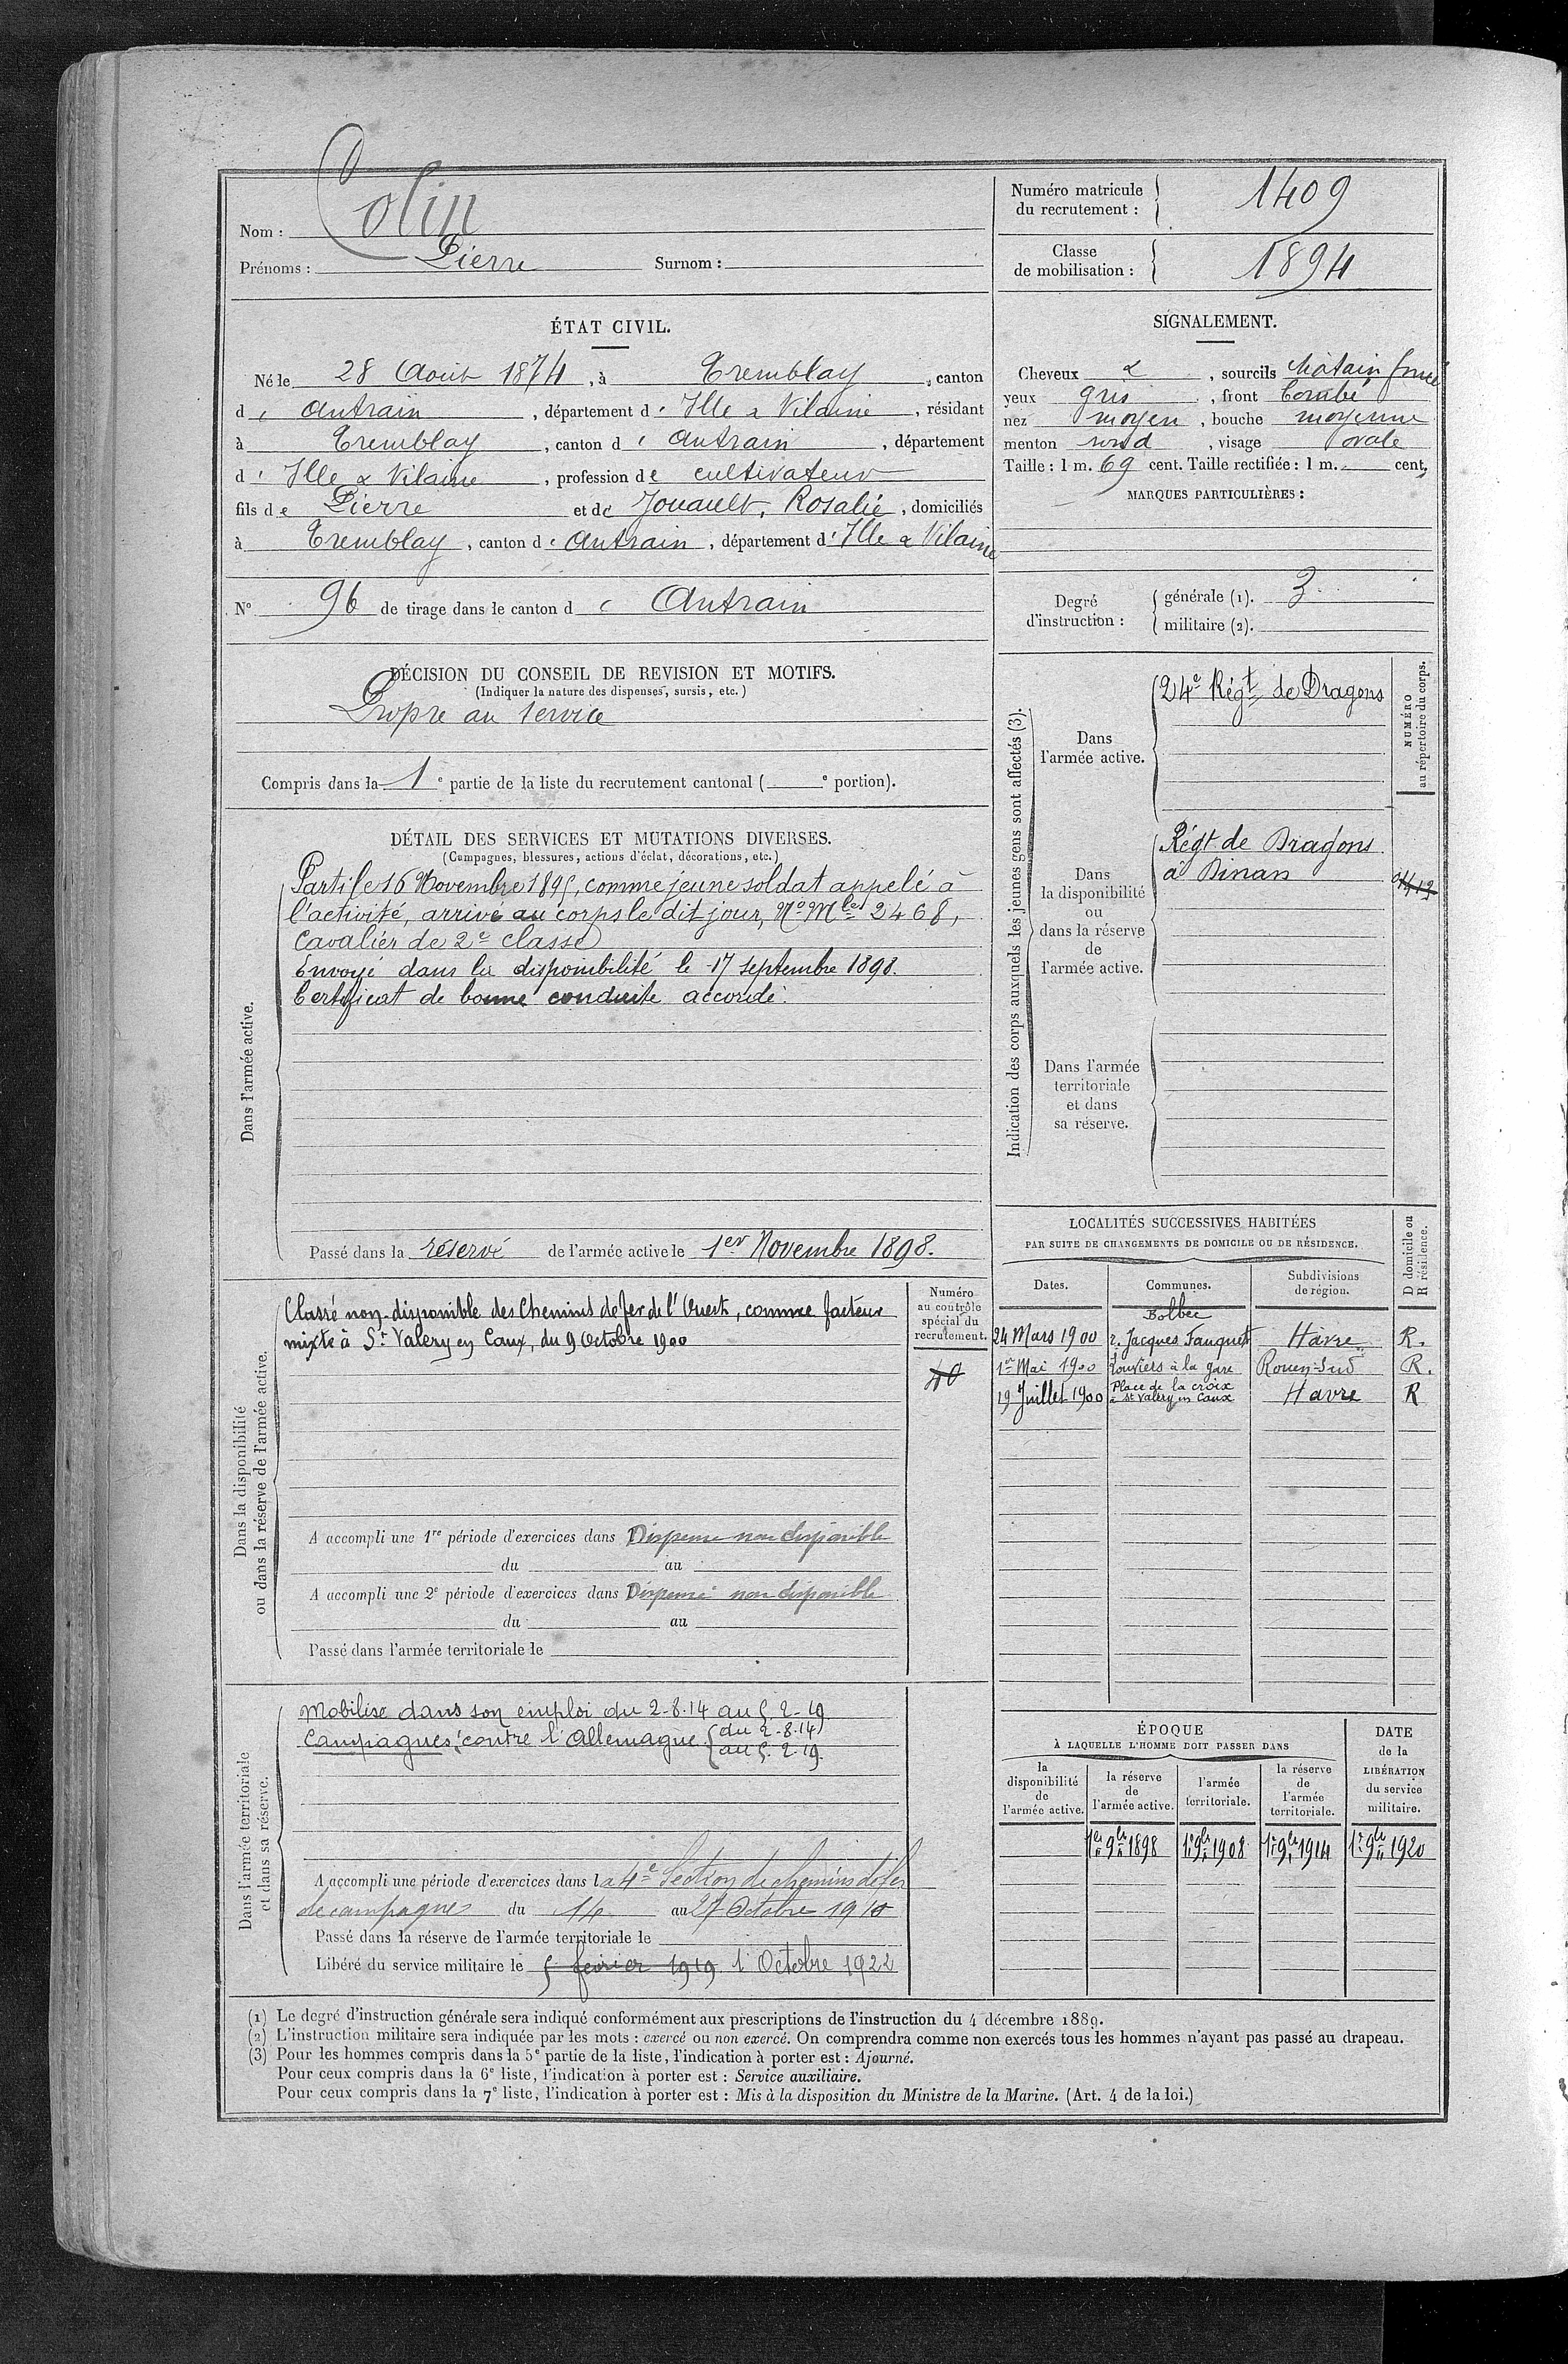 Nom : Colin
Prénoms : Pierre Surnom :
Numéro matricule du recrutement : 1409
Classe de mobilisation : 1894
ÉTAT CIVIL.
Né le 28 Août 1874, à Tremblay, canton
d' Antrain, département d' Ille & Vilaine, résidant
à Tremblay, canton d' Antrain, département
d' Ille & Vilaine, profession de cultivateur
fils de Pierre et de Jouault, Rosalie, domiciliés
à Tremblay, canton d' Antrain, département d' Ille & Vilaine
N° 96 de tirage dans le canton d' Antrain
SIGNALEMENT.
Cheveux &, sourcils châtain foncé
yeux gris, front bombé
nez moyen, bouche moyenne
menton rond, visage ovale
Taille : 1 m. 69 cent. Taille rectifiée : 1 m. - cent.
MARQUES PARTICULIÈRES :
Degré d'instruction : générale (1). 3
militaire (2).
DÉCISION DU CONSEIL DE REVISION ET MOTIFS.
(Indiquer la nature des dispenses, sursis, etc.)
Propre au service
Compris dans la 1e partie de la liste du recrutement cantonal ( e portion).
DÉTAIL DES SERVICES ET MUTATIONS DIVERSES.
(Campagnes, blessures, actions d'éclat, décorations, etc.)
Dans l'armée active.
Parti le 16 Novembre 1895, comme jeune soldat appelé à
l'activité, arrivé au corps le dit jour, No Mle 2468,
Cavalier de 2e classe
Envoyé dans la disponibilité le 17 septembre 1898.
Certificat de bonne conduite accordé.
Passé dans la réserve de l'armée active le 1er Novembre 1898.
Indication des corps auxquels les jeunes gens sont affectés (3).
NUMÉRO au répertoire du corps.
Dans l'armée active.
24e Régt de Dragons
Dans la disponibilité ou dans la réserve de l'armée active.
Régt de Dragons
à Dinan
Dans l'armée territoriale et dans sa réserve.
LOCALITÉS SUCCESSIVES HABITÉES
PAR SUITE DE CHANGEMENTS DE DOMICILE OU DE RÉSIDENCE.
D domicile ou R résidence.
Dates. Communes. Subdivisions de région.
Bolbec
24 Mars 1900 r. Jacques Fauquet Hâvre R.
1er Mai 1900 Louviers à la gare Rouen-Sud R.
19 Juillet 1900 Place de la croix à St Valery en Caux Havre R
Dans la disponibilité ou dans la réserve de l'armée active.
Numéro au contrôle spécial du recrutement.
40
Classé non-disponible des Chemins de fer de l'Ouest, comme facteur
mixte à St Valery en Caux, du 9 Octobre 1900
A accompli une 1re période d'exercices dans Dispensé non disponible
du au
A accompli une 2e période d'exercices dans Dispensé non disponible
du au
Passé dans l'armée territoriale le
Dans l'armée territoriale et dans sa réserve.
Mobilisé dans son emploi du 2-8-14 au 5-2-19
Campagnes : contre l'Allemagne { du 2-8-14
au 5-2-19.
A accompli une période d'exercices dans la 4e Section de chemins de fer
de campagne du 14 au 27 Octobre 1910
Passé dans la réserve de l'armée territoriale le
Libéré du service militaire le 5 février 1919 1 Octobre 1922
ÉPOQUE
À LAQUELLE L'HOMME DOIT PASSER DANS
la disponibilité de l'armée active.
la réserve de l'armée active.
l'armée territoriale.
la réserve de l'armée territoriale.
DATE de la LIBÉRATION du service militaire.
1er 9bre 1898 1er 9bre 1908 1er 9bre 1914 1er 9bre 1920
(1) Le degré d'instruction générale sera indiqué conformément aux prescriptions de l'instruction du 4 décembre 1889.
(2) L'instruction militaire sera indiquée par les mots : exercé ou non exercé. On comprendra comme non exercés tous les hommes n'ayant pas passé au drapeau.
(3) Pour les hommes compris dans la 5e partie de la liste, l'indication à porter est : Ajourné.
Pour ceux compris dans la 6e liste, l'indication à porter est : Service auxiliaire.
Pour ceux compris dans la 7e liste, l'indication à porter est : Mis à la disposition du Ministre de la Marine. (Art. 4 de la loi.)